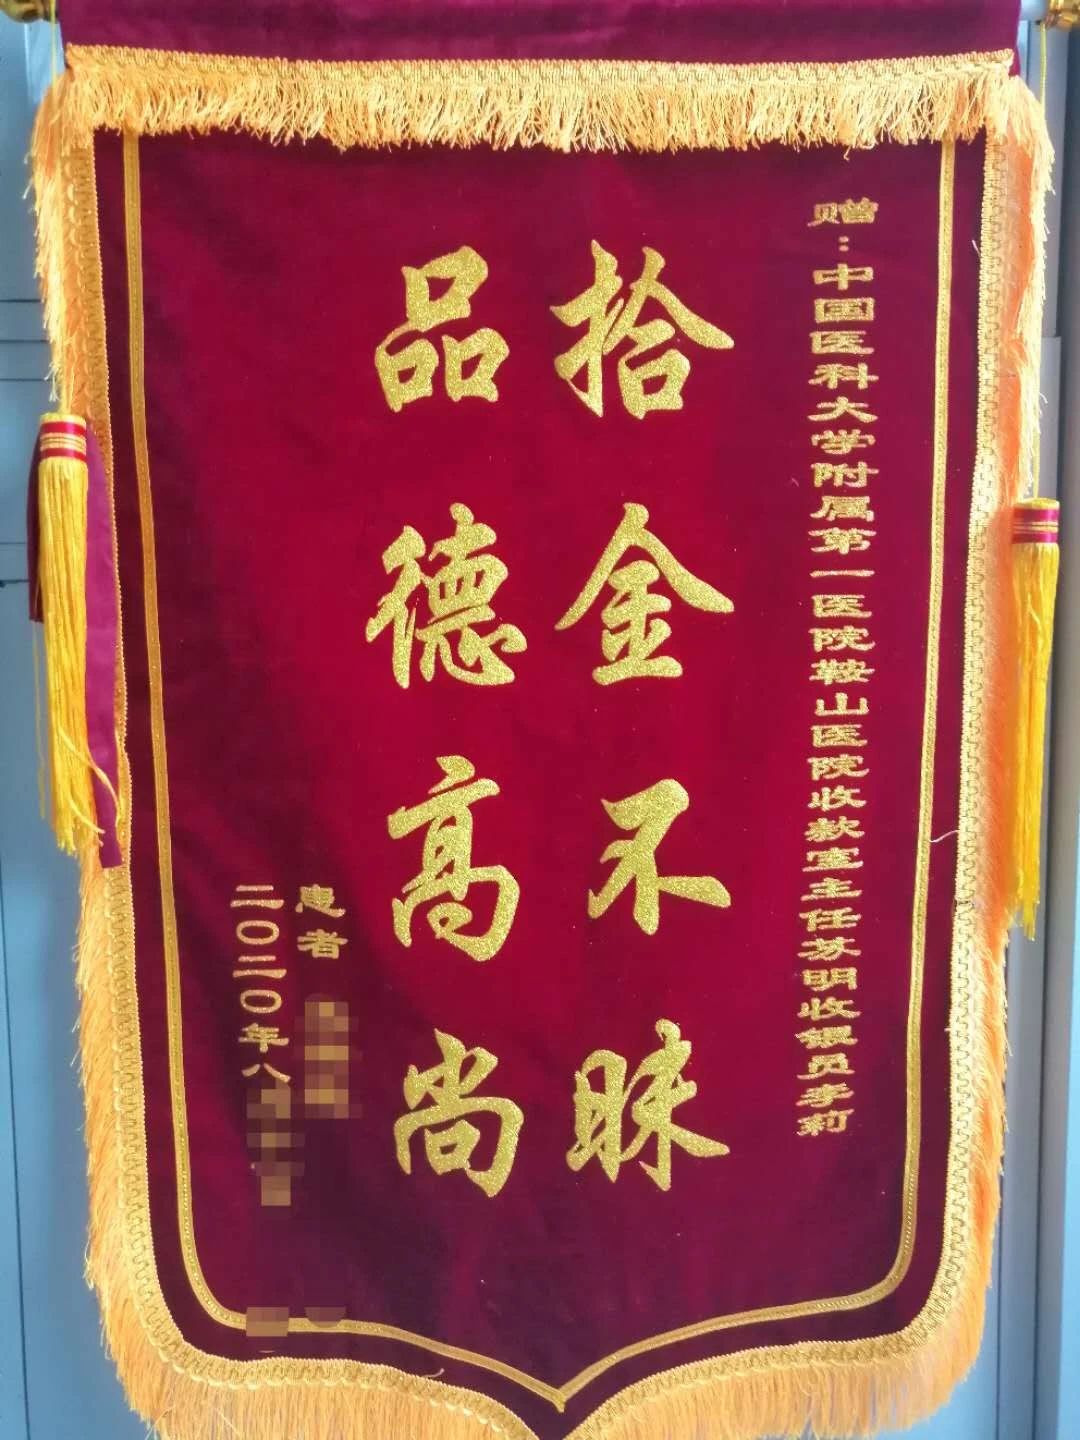 赠：中国医科大学附属第一医院鞍山医院收款室主任苏明收银员李莉
拾金不昧
品德高尚
患者
二〇二〇年八